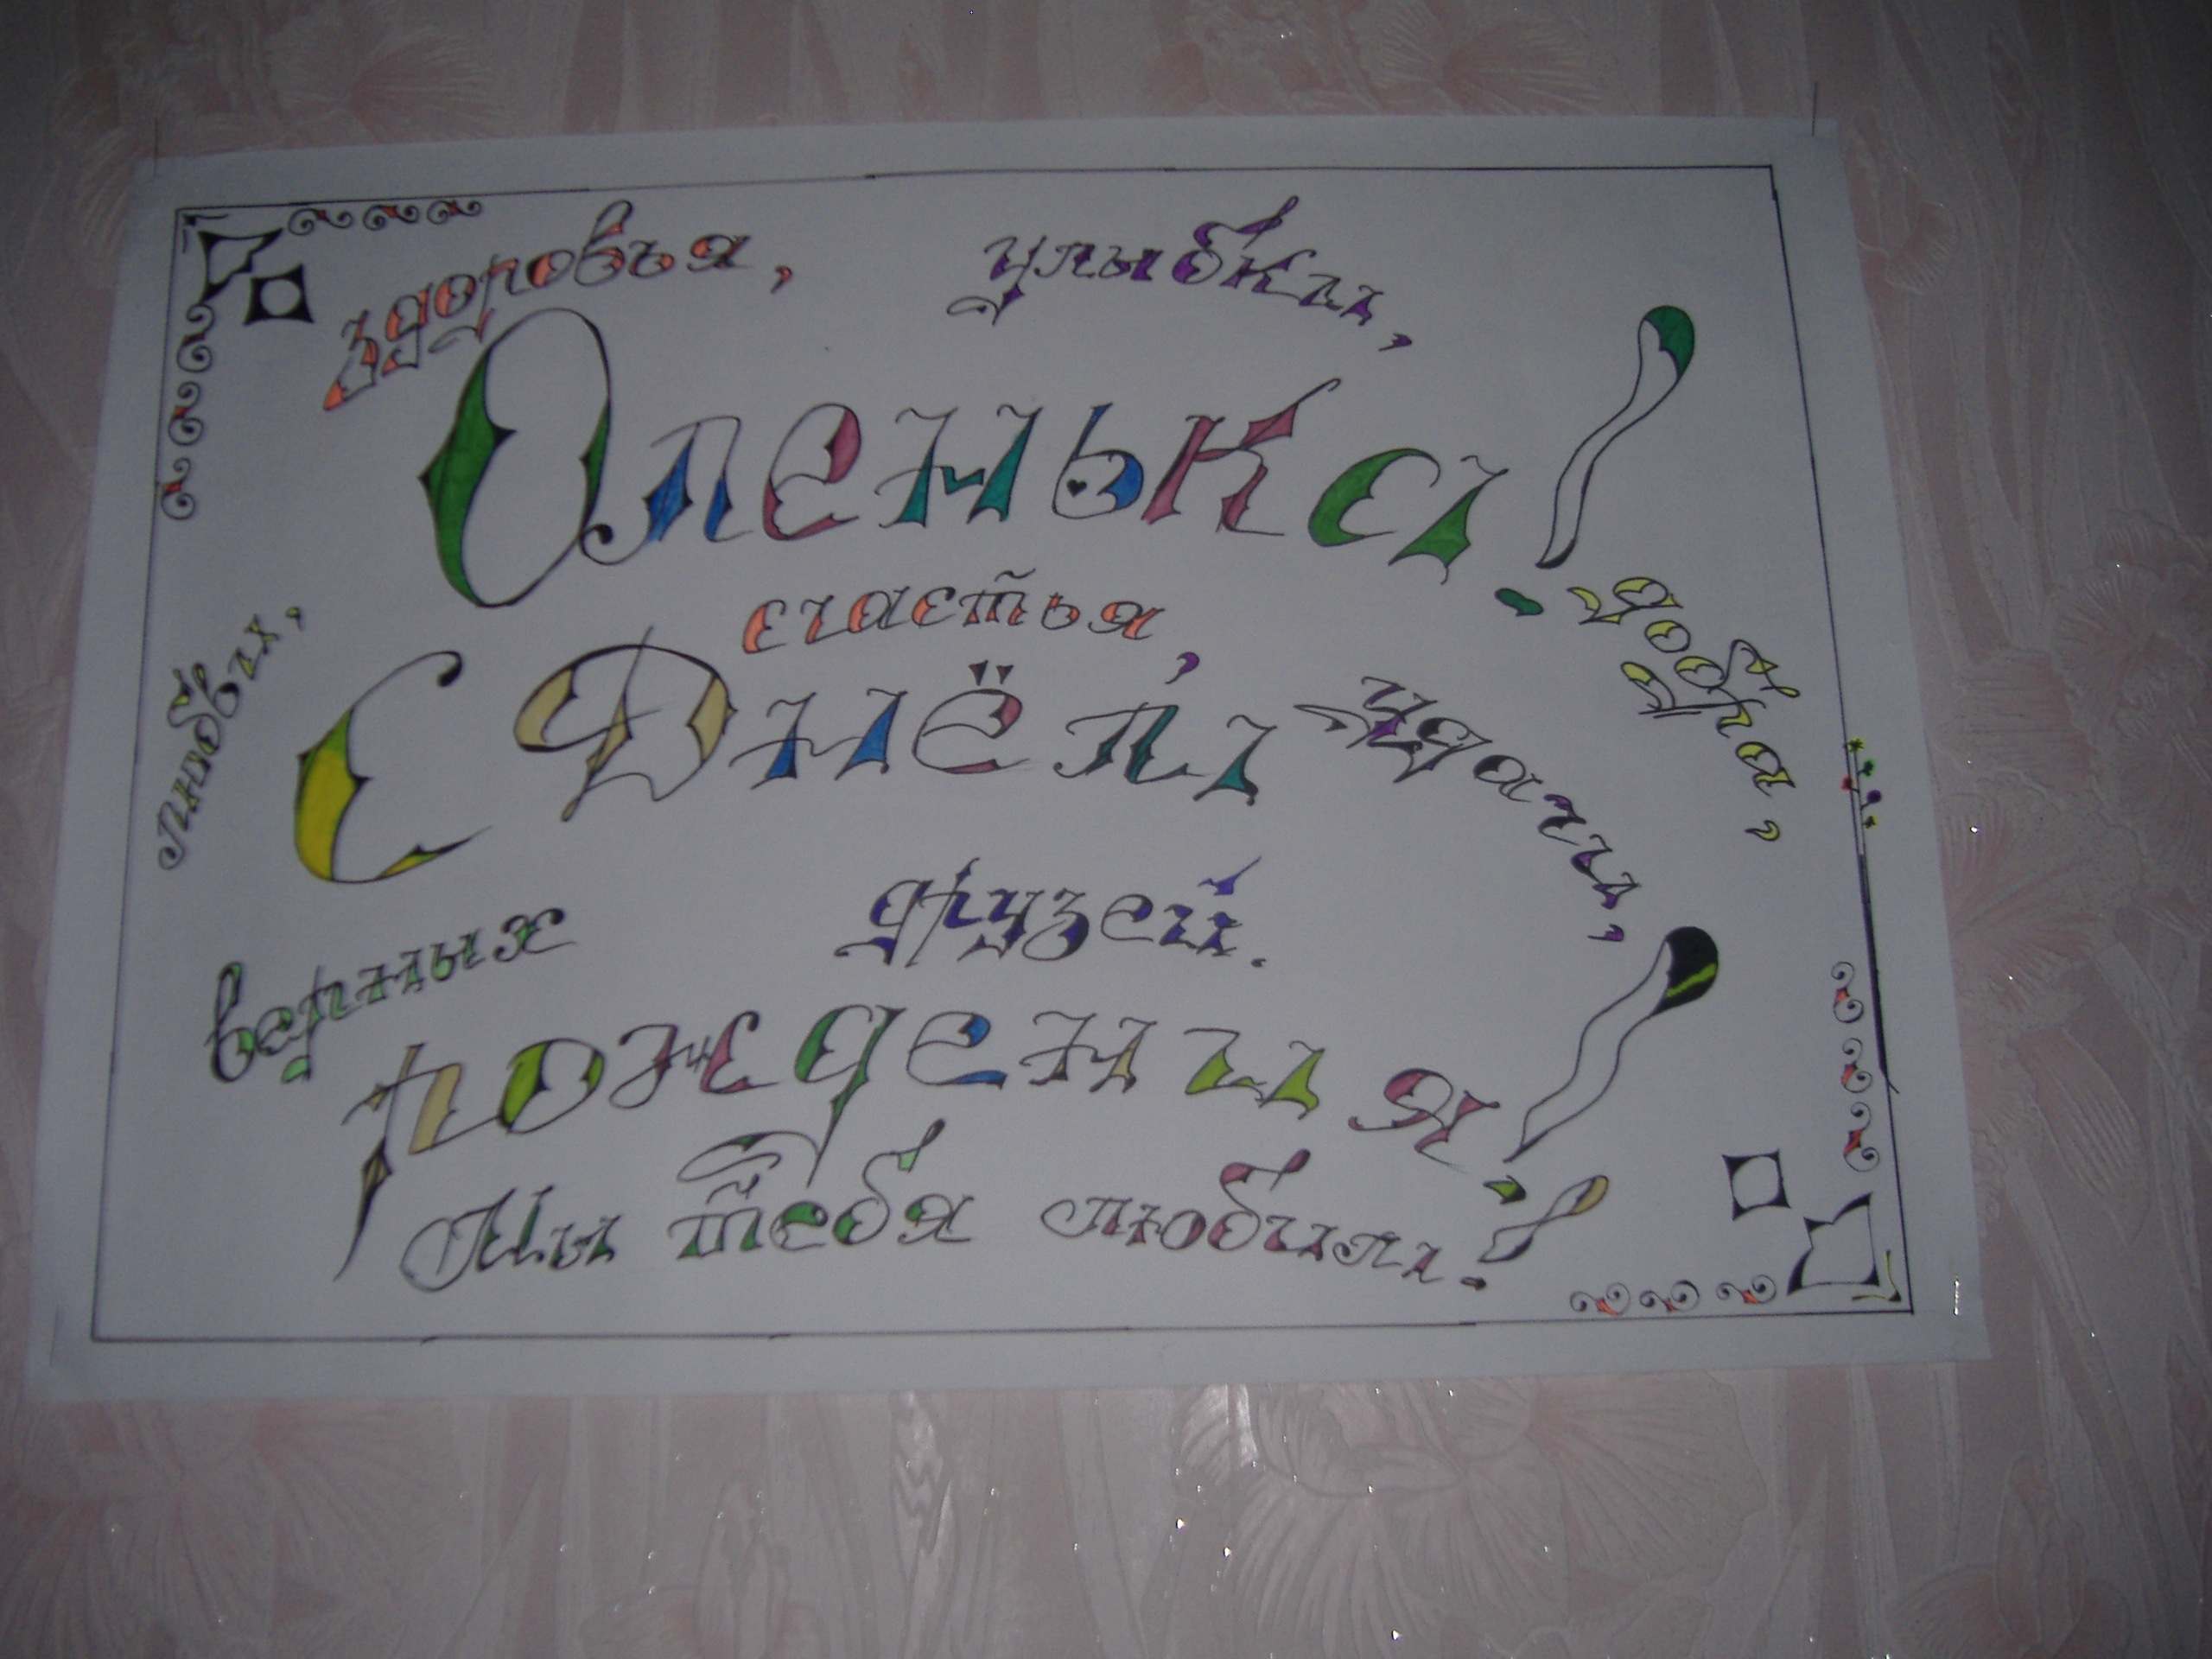 здоровья, улыбки,
Оленька!
счастья, добра,
любви,
С Днём удачи,
верных друзей.
рождения!
Мы тебя любим!